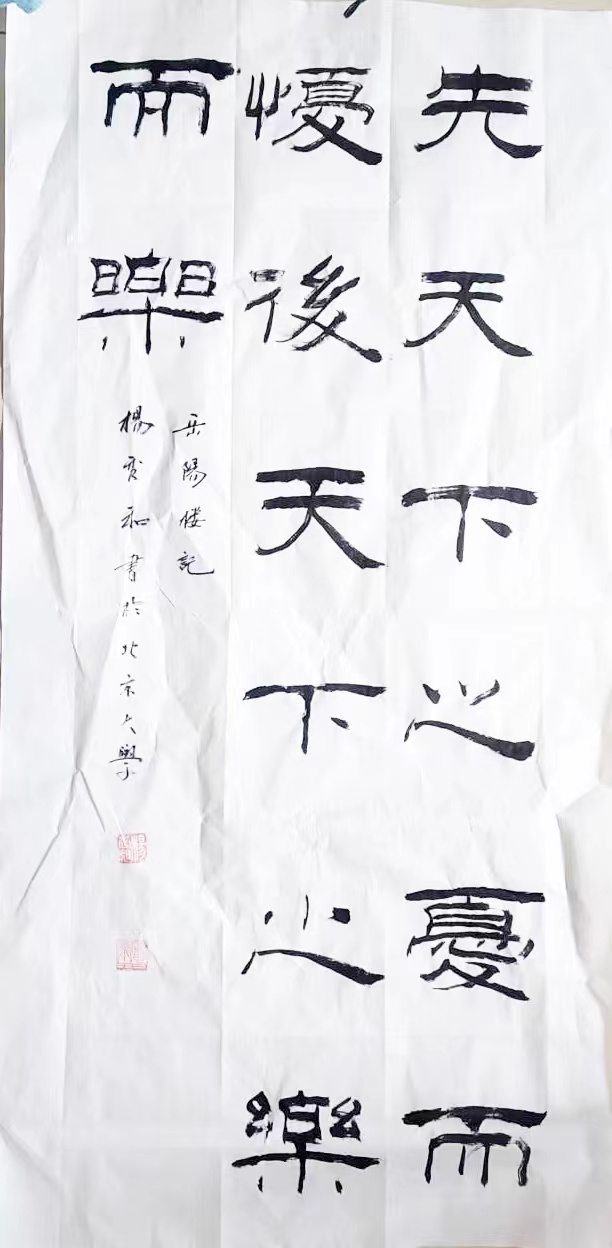 先天下之憂而
懮後天下之樂
而樂
岳陽樓記
楊雲和書於北京大學